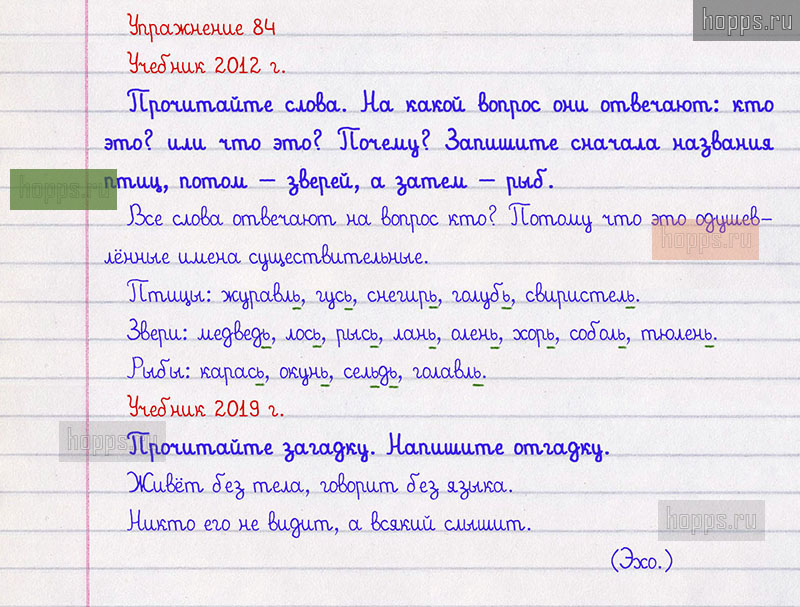 hopps.ru
Упражнение 84
Учебник 2012 г.
Прочитайте слова. На какой вопрос они отвечают: кто
это? или что это? Почему? Запишите сначала названия
птиц, потом – зверей, а затем – рыб.
hopps.ru
Все слова отвечают на вопрос кто? Потому что это одушев-
лённые имена существительные.
hopps.ru
Птицы: журавль, гусь, снегирь, голубь, свиристель.
Звери: медведь, лось, рысь, лань, олень, хорь, соболь, тюлень.
Рыбы: карась, окунь, сельдь, голавль.
Учебник 2019 г.
hopps.ru
Прочитайте загадку. Напишите отгадку.
Живёт без тела, говорит без языка.
Никто его не видит, а всякий слышит.
hopps.ru
(Эхо.)